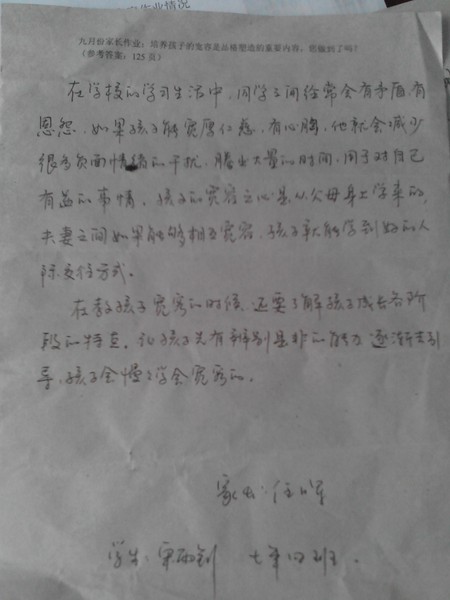 作业情况
九月份家长作业：培养孩子的宽容是品格塑造的重要内容，您做到了吗？
（参考答案：125页）
在学校的学习生活中，同学之间经常会有矛盾，有
恩怨，如果孩子能宽厚仁慈，有心胸，他就会减少
很多负面情绪的干扰，腾出大量的时间，用于对自己
有益的事情。孩子的宽容之心是从父母身上学来的，
夫妻之间如果能够相互宽容，孩子就能学到好的人
际交往方式。
在教孩子宽容的时候，还要了解孩子成长各阶
段的特点，让孩子先有辨别是非的能力，逐渐去引
导，孩子会慢慢学会宽容的。
家长：任
学生：宋雨钊 七年四班。